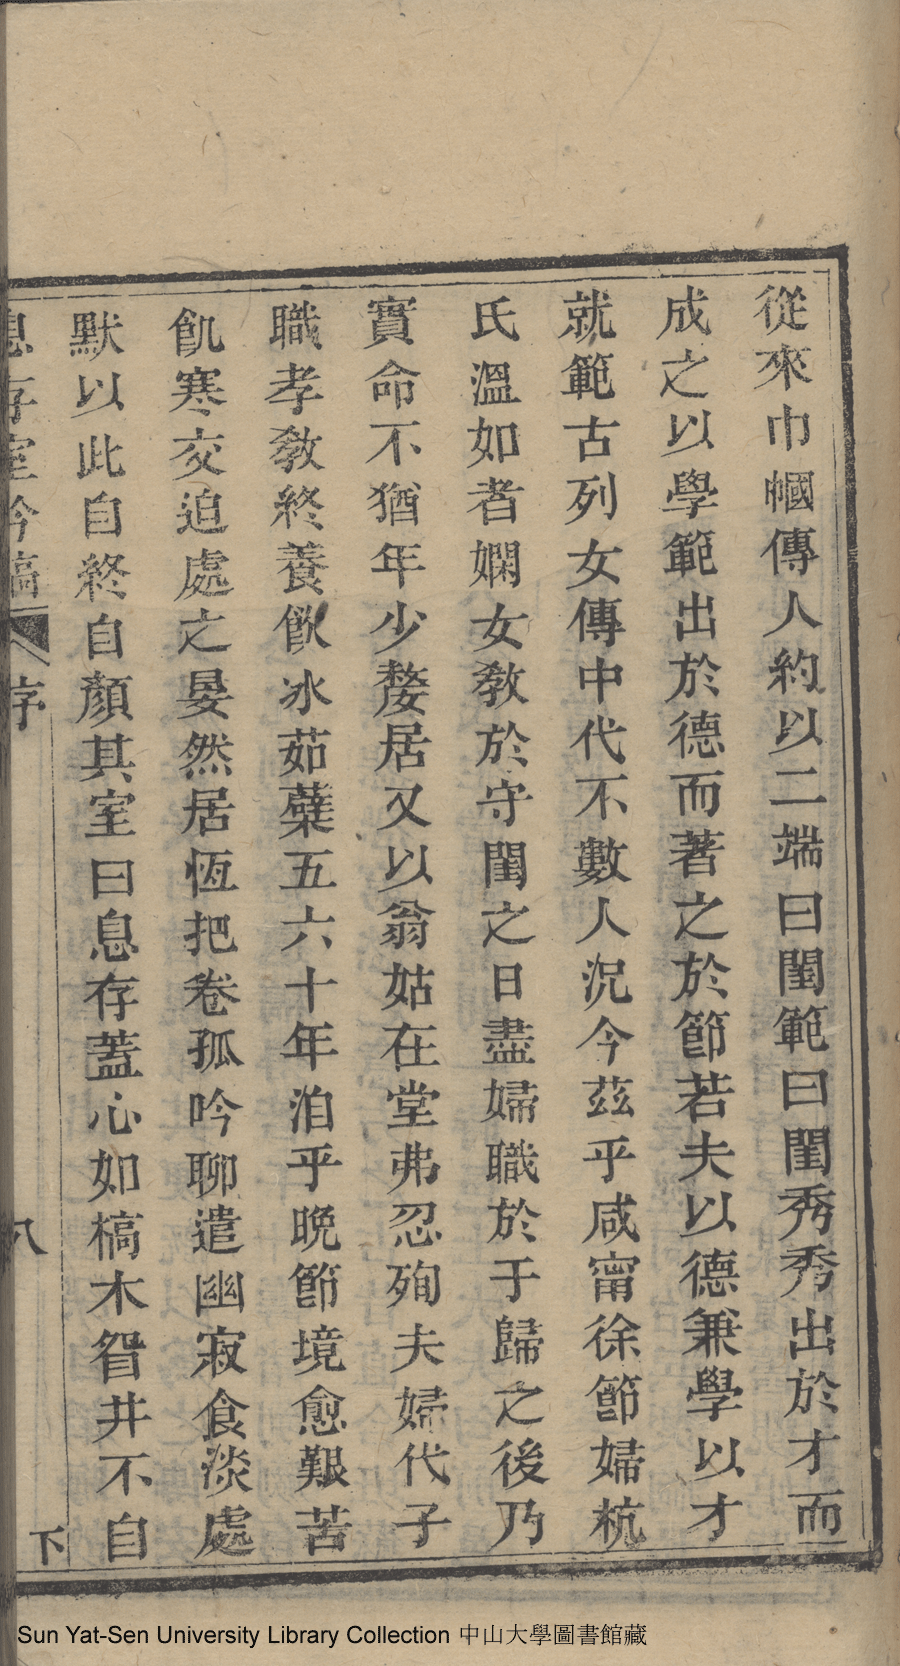 從來巾幗傳人約以二端曰閨範曰閨秀秀出於才而
成之以學範出於德而著之於節若夫以德兼學以才
就範古列女傳中代不數人況今茲乎咸甯徐節婦杭
氏溫如者嫻女敎於守閨之日盡婦職於于歸之後乃
實命不猶年少嫠居又以翁姑在堂弗忍殉夫婦代子
職孝敎終養飮冰茹蘗五六十年洎乎晩節境愈艱苦
飢寒交迫處之晏然居恆把卷孤吟聊遣幽寂食淡處
默以此自終自顏其室曰息存蓋心如槁木眢井不自
息存室吟稿 序 八 下
Sun Yat-Sen University Library Collection 中山大學圖書館藏